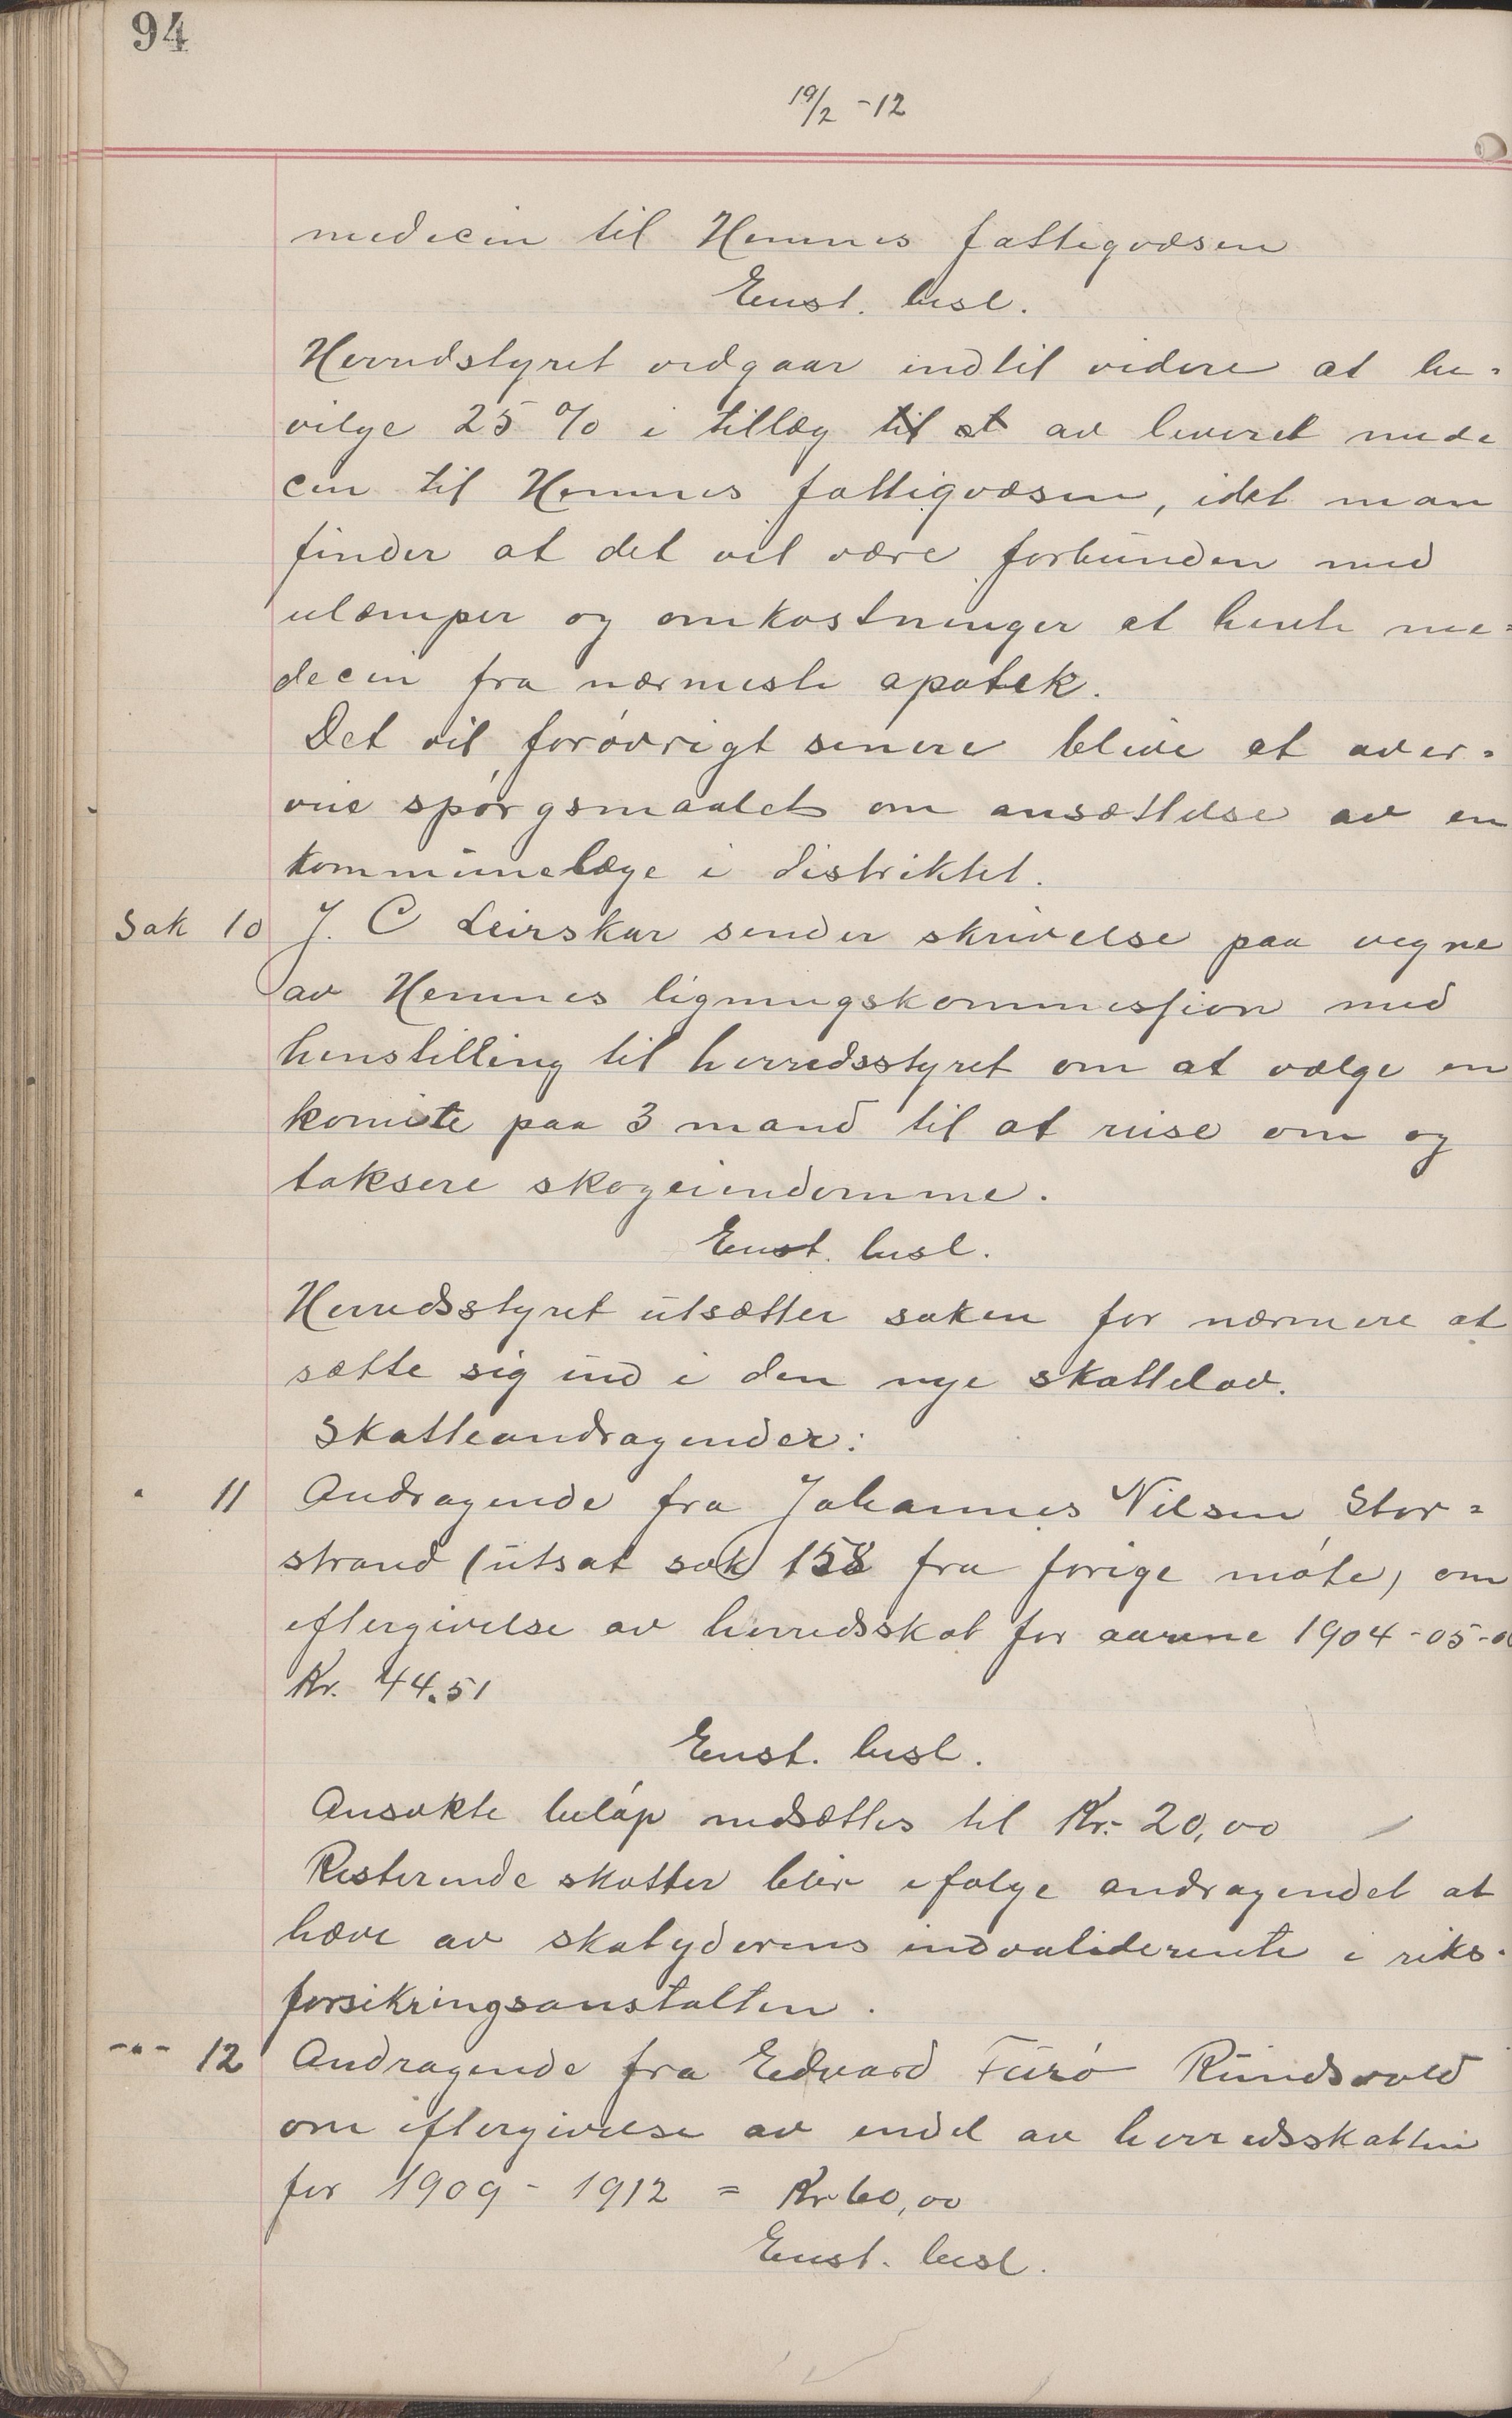 94
19/2 -12
medecin til Hemnes fattigvæsen
Enst. besl.
Herredstyret vedgaar indtil videre at be-
vilge 25 % i tillæg til at av leveret mede
cin til Hemnes fattigvæsen, idet man
finder at det vil være forbunden med
ulæmper og omkostninger at hente me=
decin fra nærmeste apotek.
Det vil forøvrigt senere blive at over-
veie spørgsmaalet om ansættelse av en
kommunelæge i distriktet.
Sak 10 J. C Leirskar sender skrivelse paa vegne
av Hemnes ligningskommission med
henstilling til herredsstyret om at vælge en
komite paa 3 mand til at reise om og
taksere skogeiendomme.
Enst. besl.
Herredsstyret utsætter saken for nærmere at
sætte sig ind i den nye skattelov.
Skatteandragender:
" 11 Andragende fra Johannes Nilsen Stor=
strand (utsat sak 158 fra forige møte) om
eftergivelse av herredsskat for aarene 1904-05-0
Kr. 44.51
Enst. besl.
Ansøkte beløp nedsættes til Kr. 20,00
Resterende skatter blir ifølge andragendet at
hæve av skatyderens indvaliderente i riks-
forsikringsanstalten.
-"- 12 Andragende fra Edvard Furø Rundsvold
om eftergivelse av endel av herredsskatten
for 1909 - 1912 = Kr 60,00
Enst. besl.